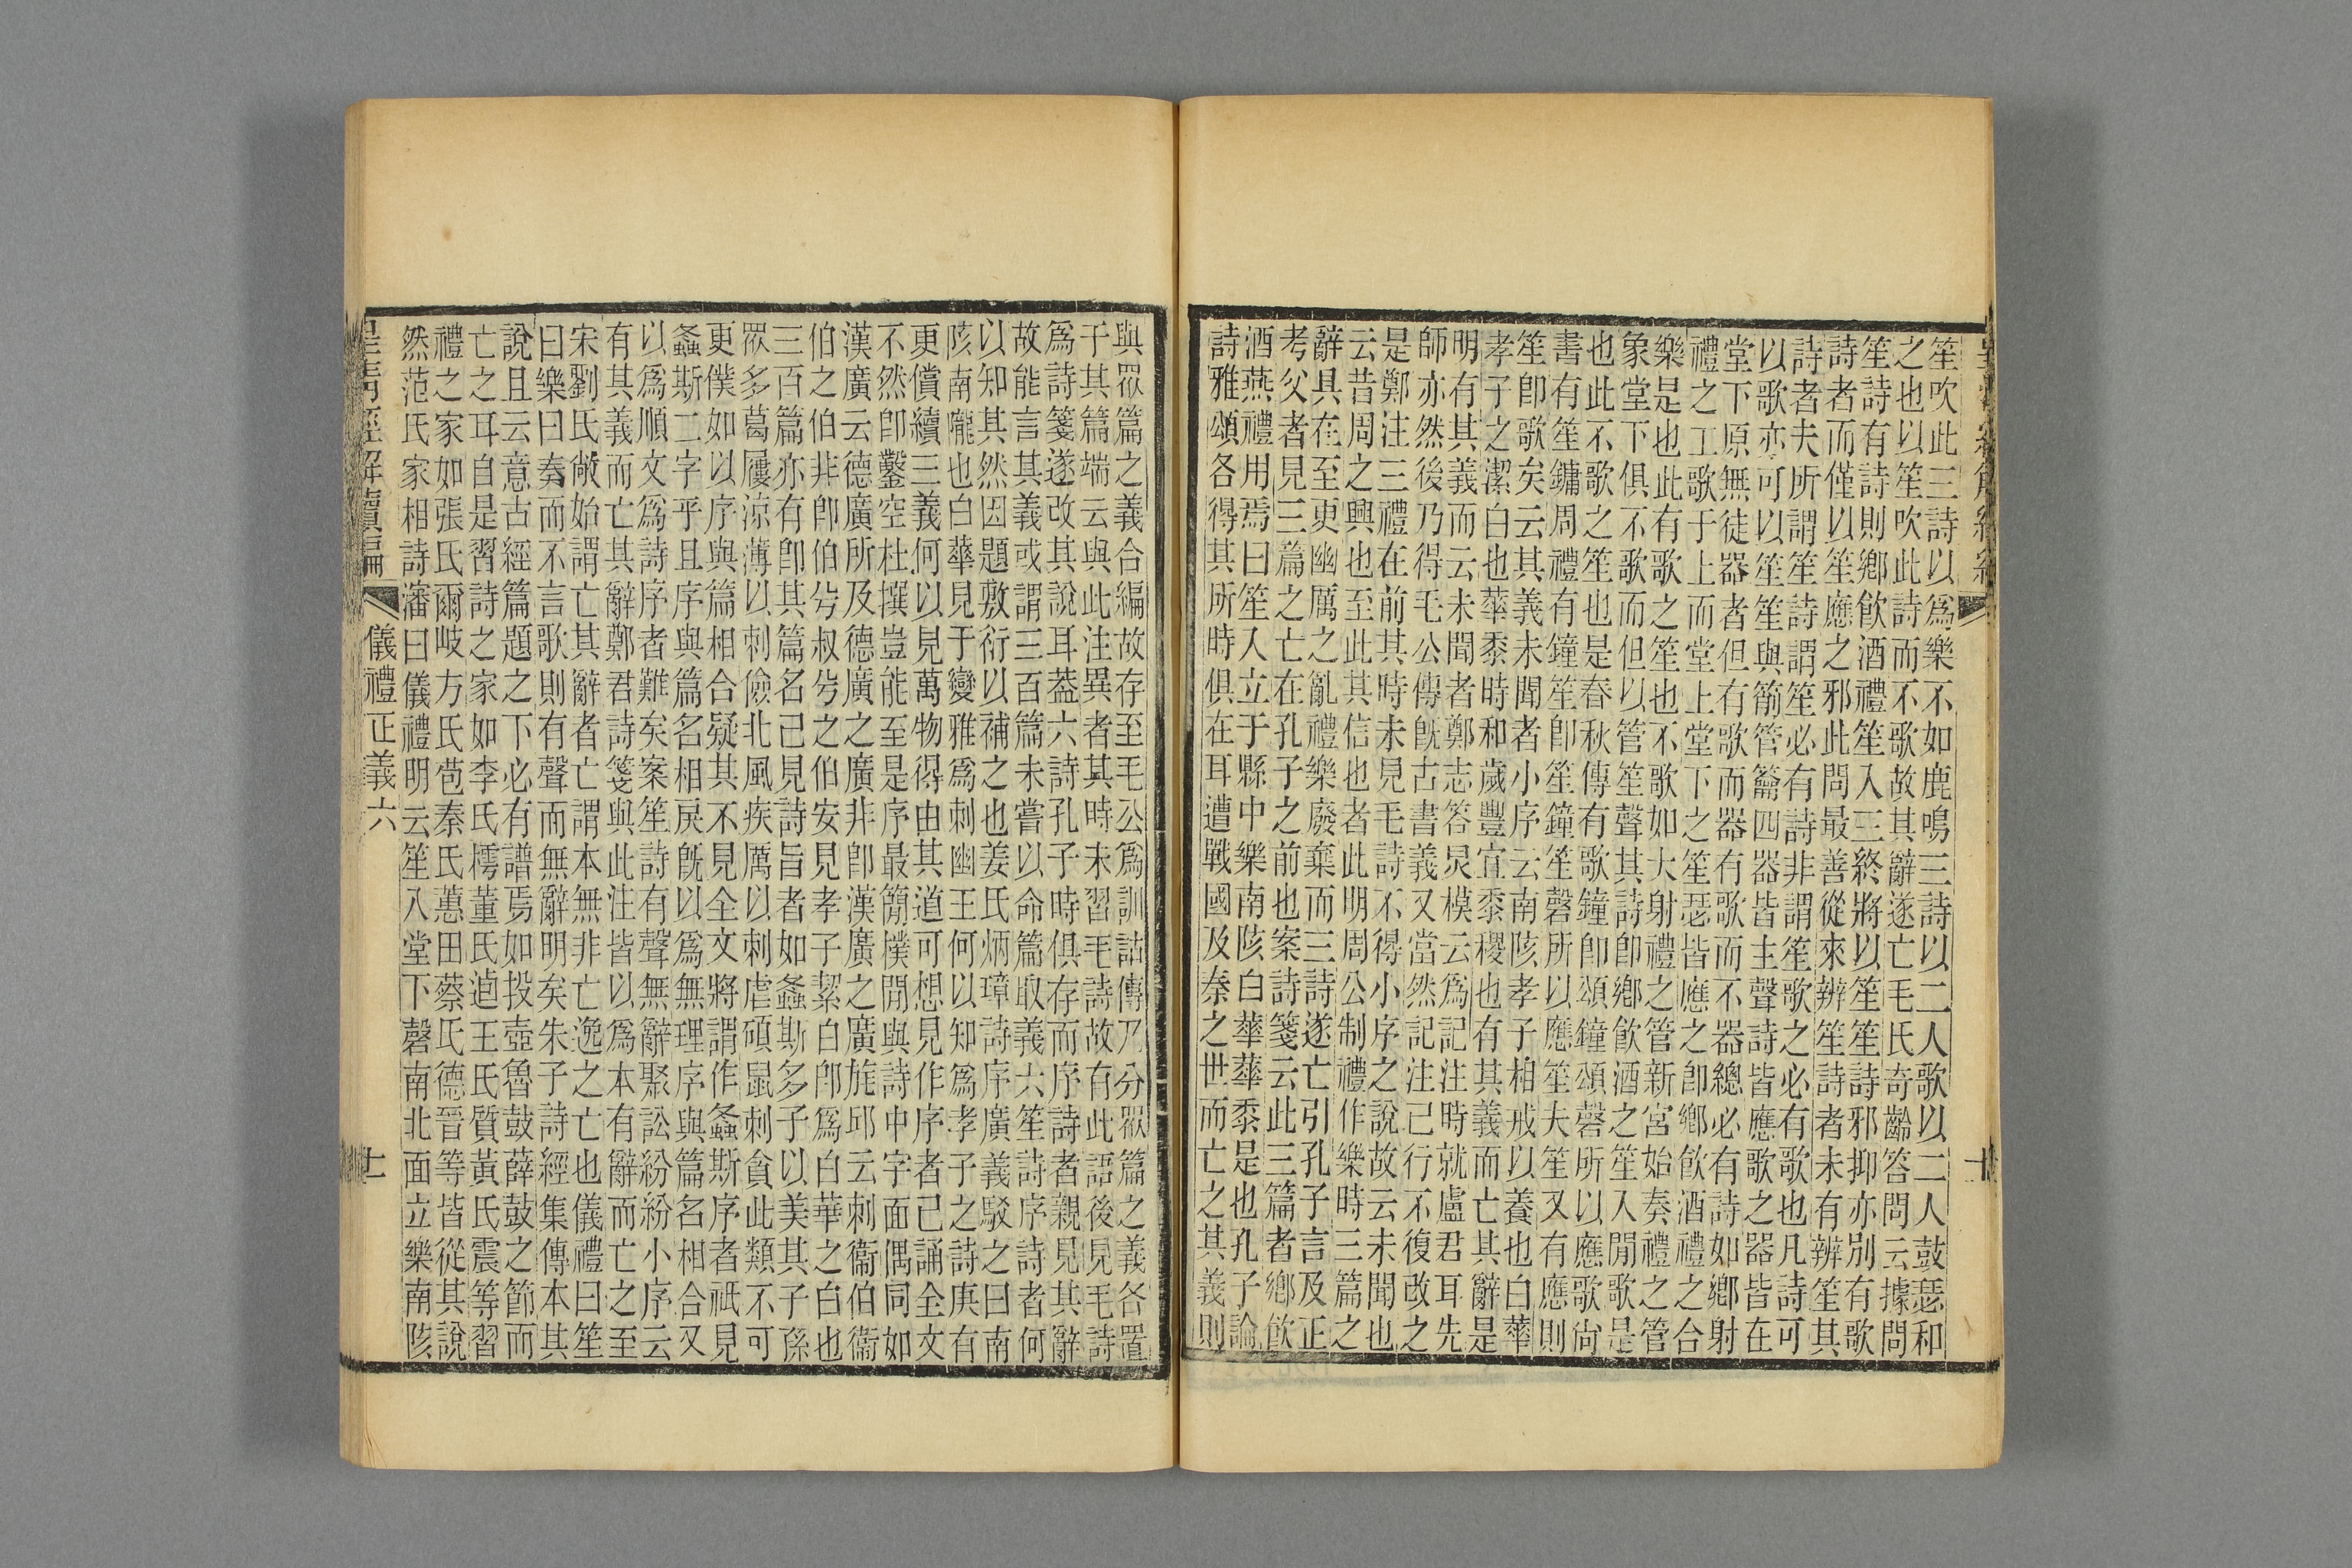 笙吹此三詩以爲樂不如鹿鳴三詩以二人歌以二人鼓瑟和
之也以笙吹此詩而不歌故其辭遂亡毛氏奇齡答問云據問
笙詩有詩則鄉飮酒禮笙入三終將以笙笙詩邪抑亦別有歌
詩者而僅以笙應之邪此問最善從來辨笙詩者未有辨笙其
詩者夫所謂笙詩謂笙必有詩非謂笙歌之必有歌也凡詩可
以歌亦可以笙笙與簫管籥四器皆主聲詩皆應歌之器皆在
堂下原無徒器者但有歌而器有歌而不器總必有詩如鄉射
禮之工歌于上而堂上堂下之笙瑟皆應之卽鄉飮酒禮之合
樂是也此有歌之笙也不歌如大射禮之管新宮始奏禮之管
象堂下俱不歌而但以管笙聲其詩卽鄉飮酒之笙入閒歌是
也此不歌之笙也是春秋傳有歌鐘卽頌鐘頌磬所以應歌尙
書有笙鏞周禮有鐘笙卽笙鐘笙磬所以應笙夫笙又有應則
笙卽歌矣云其義未聞者小序云南陔孝子相戒以養也白華
孝子之潔白也華黍時和歲豐宜黍稷也有其義而亡其辭是
明有其義而云未聞者鄭志答炅模云爲記注時就盧君耳先
師亦然後乃得毛公傳旣古書義又當然記注已行不復改之
是鄭注三禮在前其時未見毛詩不得小序之說故云未聞也
云昔周之興也至此其信也者此明周公制禮作樂時三篇之
辭具在至更幽厲之亂禮樂廢棄而三詩遂亡引孔子言及正
考父者見三篇之亡在孔子之前也案詩箋云此三篇者鄉飮
酒燕禮用焉曰笙入立于縣中樂南陔白華華黍是也孔子論
詩雅頌各得其所時俱在耳遭戰國及秦之世而亡之其義則
與眾篇之義合編故存至毛公爲訓詁傳乃分眾篇之義各置
于其篇端云與此注異者其時未習毛詩故有此語後見毛詩
爲詩箋遂改其說耳葢六詩孔子時俱存而序詩者親見其辭
故能言其義或謂三百篇未嘗以命篇取義六笙詩序詩者何
以知其然因題敷衍以補之也姜氏炳璋詩序廣義駁之曰南
陔南隴也白華見于變雅爲刺幽王何以知爲孝子之詩庚有
更償續三義何以見萬物得由其道可想見作序者已誦全文
不然卽鑿空杜撰豈能至是序最簡樸閒與詩中字面偶同如
漢廣云德廣所及德廣之廣非卽漢廣之廣旄邱云刺衞伯衞
伯之伯非卽伯兮叔兮之伯安見孝子絜白卽爲白華之白也
三百篇亦有卽其篇名已見詩旨者如螽斯多子以美其子孫
眾多葛屨涼薄以刺儉北風疾厲以刺虐碩鼠刺貪此類不可
更僕如以序與篇相合疑其不見全文將謂作螽斯序者祇見
螽斯二字乎且序與篇名相戾旣以爲無理序與篇名相合又
以爲順文爲詩序者難矣案笙詩有聲無辭聚訟紛紛小序云
有其義而亡其辭鄭君詩箋與此注皆以爲本有辭而亡之至
宋劉氏敞始謂亡其辭者亡謂本無非亡逸之亡也儀禮曰笙
曰樂曰奏而不言歌則有聲而無辭明矣朱子詩經集傳本其
說且云意古經篇題之下必有譜焉如投壺魯鼓薛鼓之節而
亡之耳自是習詩之家如李氏樗董氏逌王氏質黃氏震等習
禮之家如張氏爾岐方氏苞秦氏蕙田蔡氏德晉等皆從其說
然范氏家相詩瀋曰儀禮明云笙入堂下磬南北面立樂南陔
皇淸經解續編
儀禮正義六
十